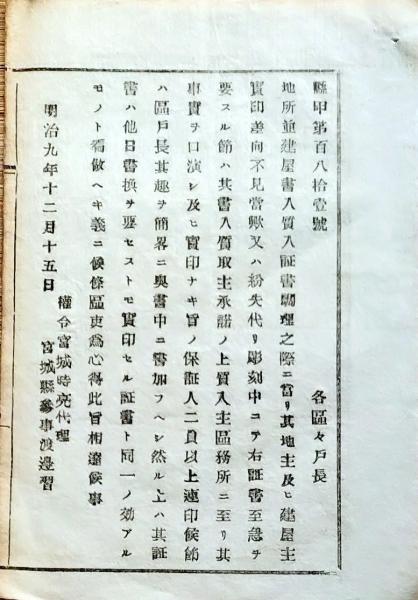 縣甲第百八拾壹號
各區々戸長
地所並建屋書入質入証書調理之際ニ當リ其地主及ヒ建屋主
實印差向不見當歟又ハ紛失代リ彫刻中ニテ右証書至急ヲ
要スル節ハ其書入質取主承諾ノ上質入主區務所ニ至リ其
事實ヲ口演シ及ヒ實印ナキ旨ノ保証人二員以上連印候節
ハ區戸長其趣ヲ簡畧ニ奥書中ニ書加フヘシ然ル上ハ其証
書ハ他日書換ヲ要セストモ實印セル証書ト同一ノ効アル
モノト看做ヘキ義ニ候條區吏爲心得此旨相達候事
明治九年十二月十五日
權令宮城時亮代理
宮城縣參事渡邊習